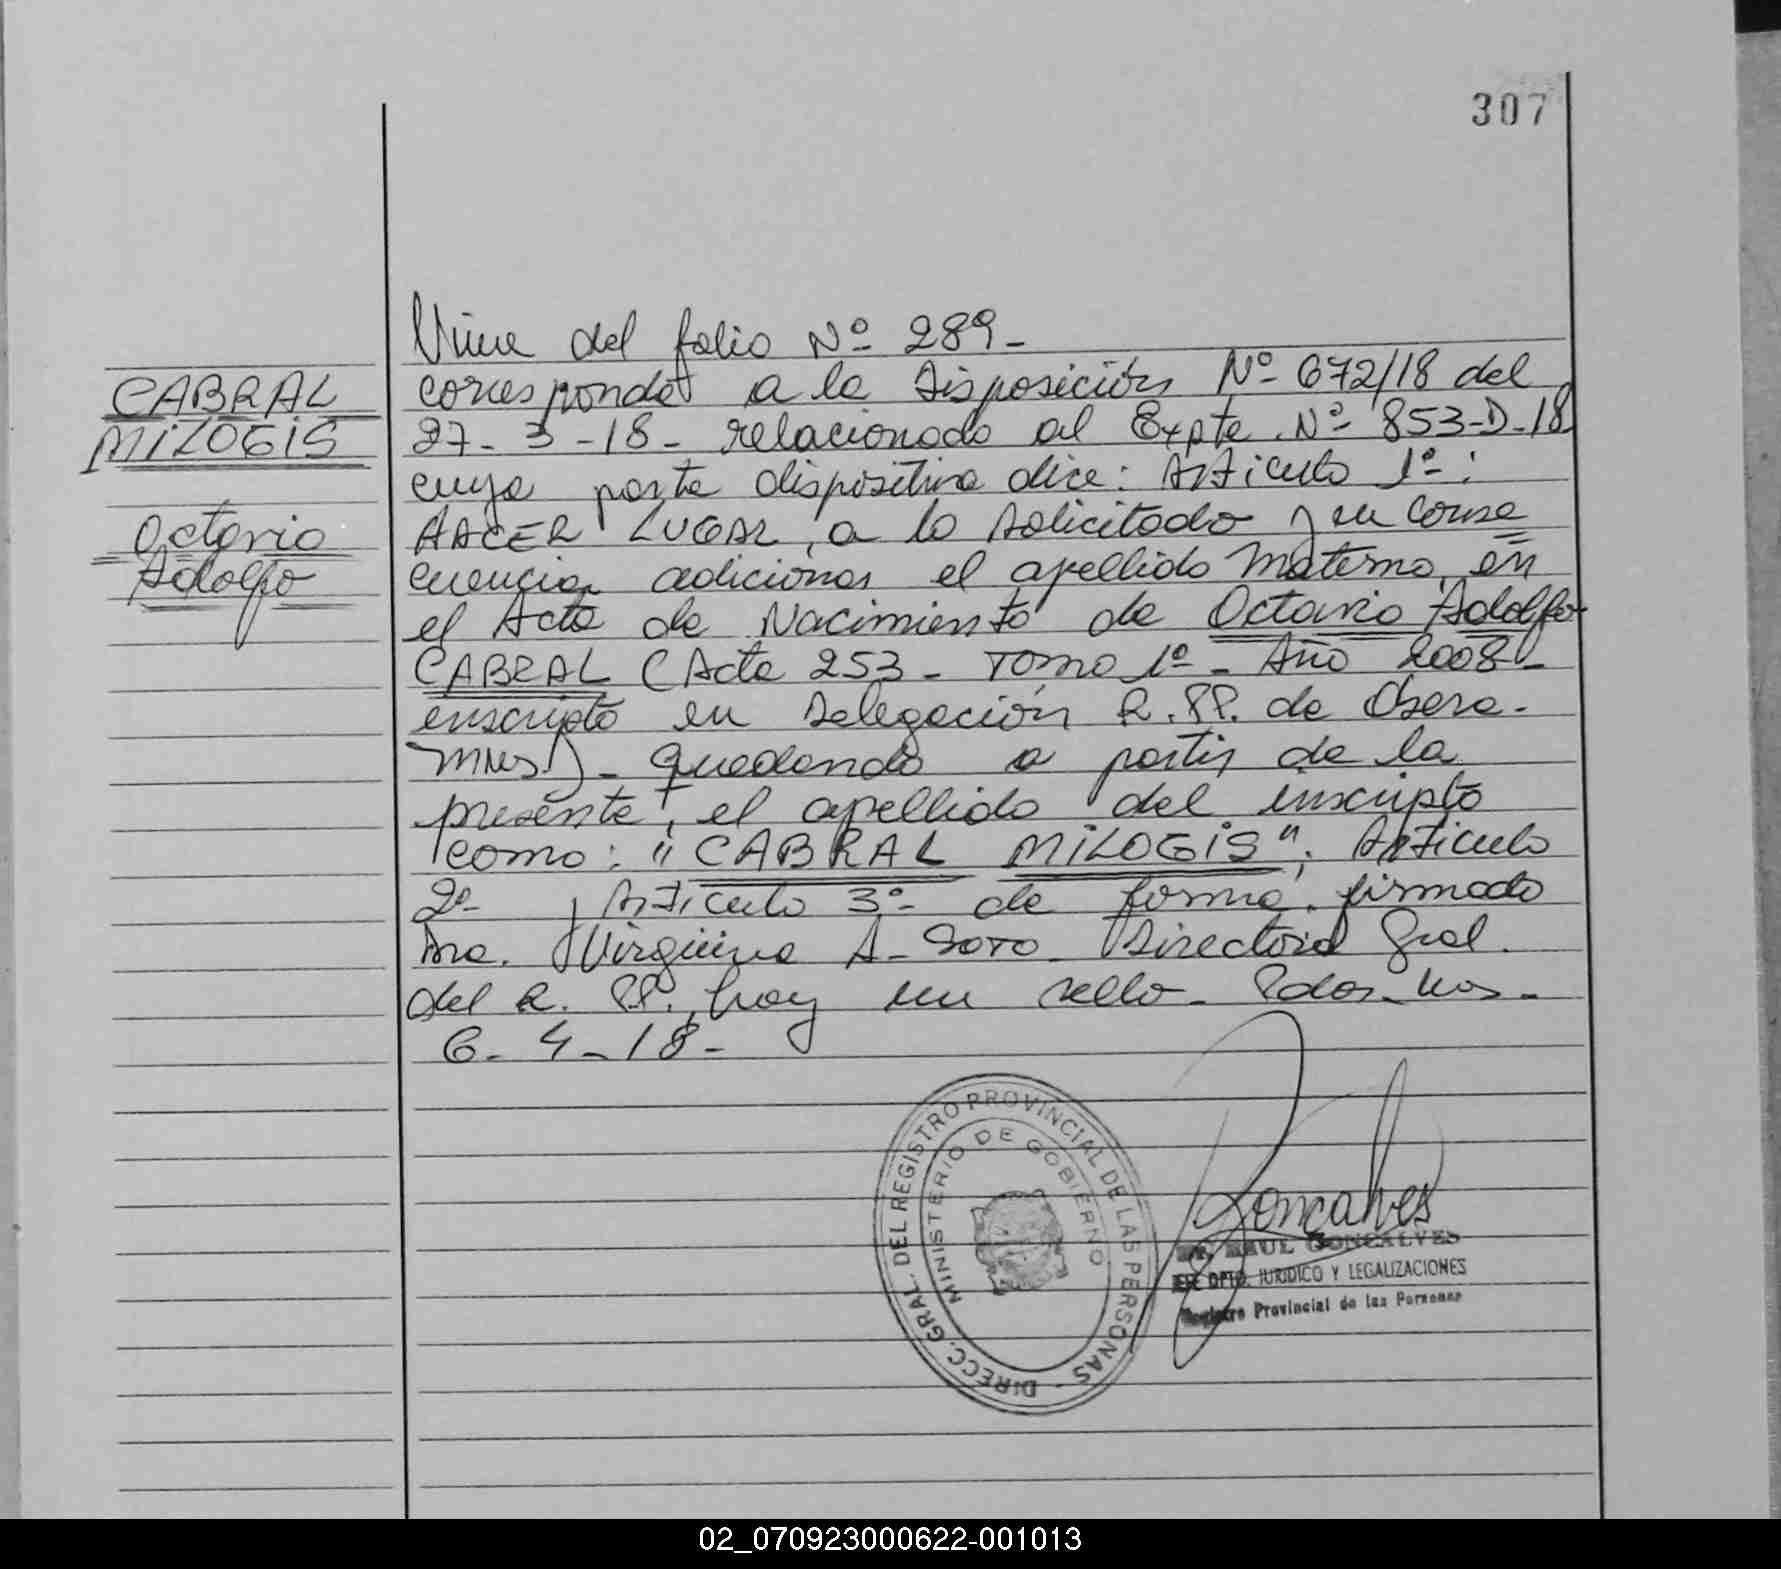 307
Viene del folio Nº 289-
CABRAL
MILOGIS
Octavio
Adolfo
corresponde a la Disposición Nº 672/18 del
27-3-18- relacionado al Expte. Nº 853-D-18
cuya parte dispositiva dice: Artículo 1º:
HACER LUGAR, a lo solicitado y en conse
cuencia adicionar el apellido materno, en
el Acta de Nacimiento de Octavio Adolfo
CABRAL (Acta 253- Tomo 1º- Año 2008-
inscripto en Delegación R.PP. de Obera-
Mnes)- Quedando a partir de la
presente, el apellido del inscripto
como: "CABRAL MILOGIS"; Artículo
2º y Artículo 3º de forma. firmado
Dra. Virginia A- SOTO- Directora Gral.
del R. PP., hay un sello- Pdas-Mns-
6-4-18-
DIRECC. GRAL. DEL REGISTRO PROVINCIAL DE LAS PERSONAS -
MINISTERIO DE GOBIERNO
Goncalves
RAUL GONCALVES
DPTO. JURIDICO Y LEGALIZACIONES
Registro Provincial de las Personas
02_070923000622-001013